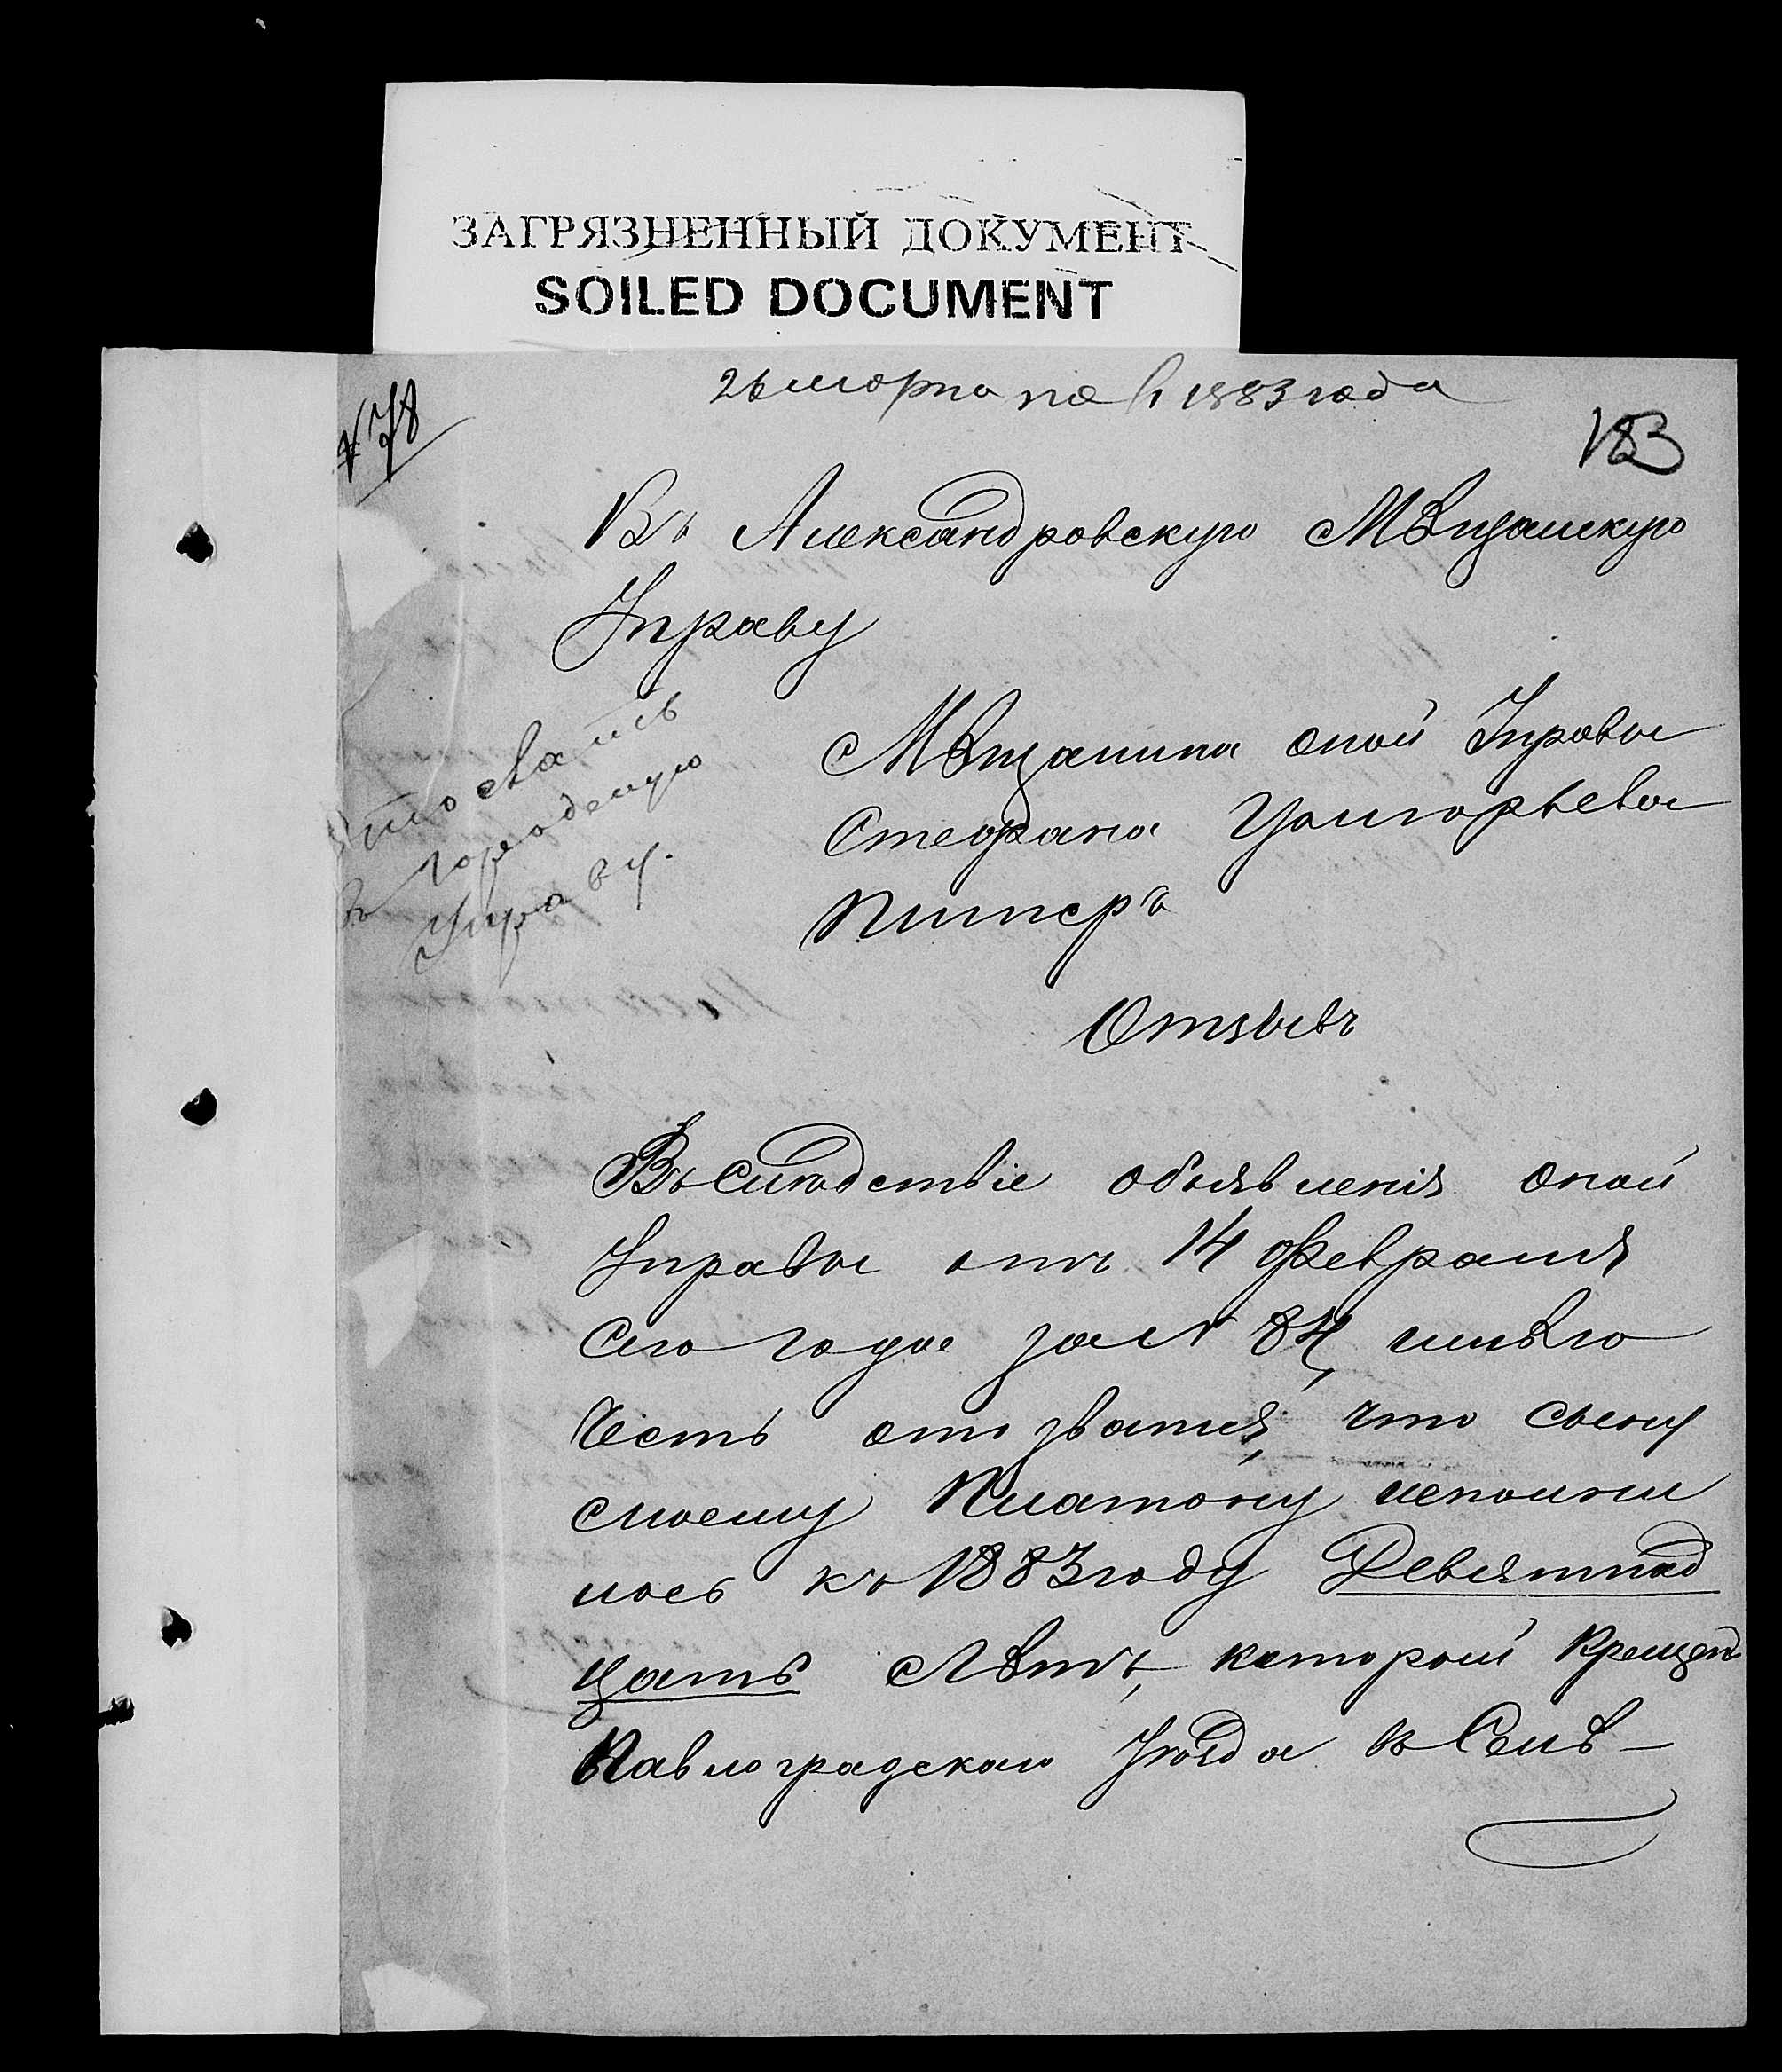 ЗАГРЯЗНЕННЫЙ ДОКУМЕНТ
SOILED DOCUMENT
26 марта 1883 года
№ 78
183
Въ Александровскую Мѣщанскую
Управу
городскую
Управу.
Мѣщанина оной Управы
Стефана Григорьева
Питеръ
Отзывъ
Въслѣдствіе объявленія оной
Управы отъ 14 февраля
сего года за № 84, имѣю
честь отозватся, что сыну
моему Платону исполни
лось къ 1883 году Девятнад
цать Лѣтъ, который крещен
Павлоградскаго уѣзда въ Селѣ –